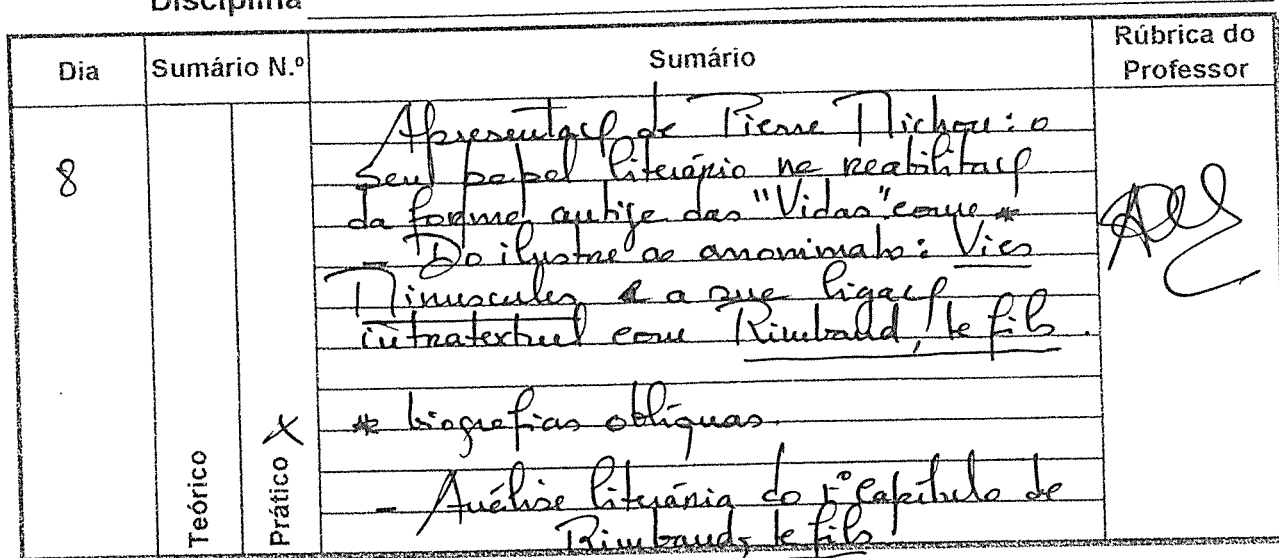 Disciplina
Dia
Sumário N.º
Sumário
Rúbrica do
Professor
8
Apresentaç de Pierre Michon: o
seu papel literário na reabilitaç
da forma antiga das "Vidas" como *
- Do ilustre ao anonimato: Vies
Minuscules e a sua ligaç
intratextual com Rimbaud, le fils.
* biografias oblíquas.
- Análise literária do 1º Capítulo de
Rimbaud, le fils
Teórico
Prático X